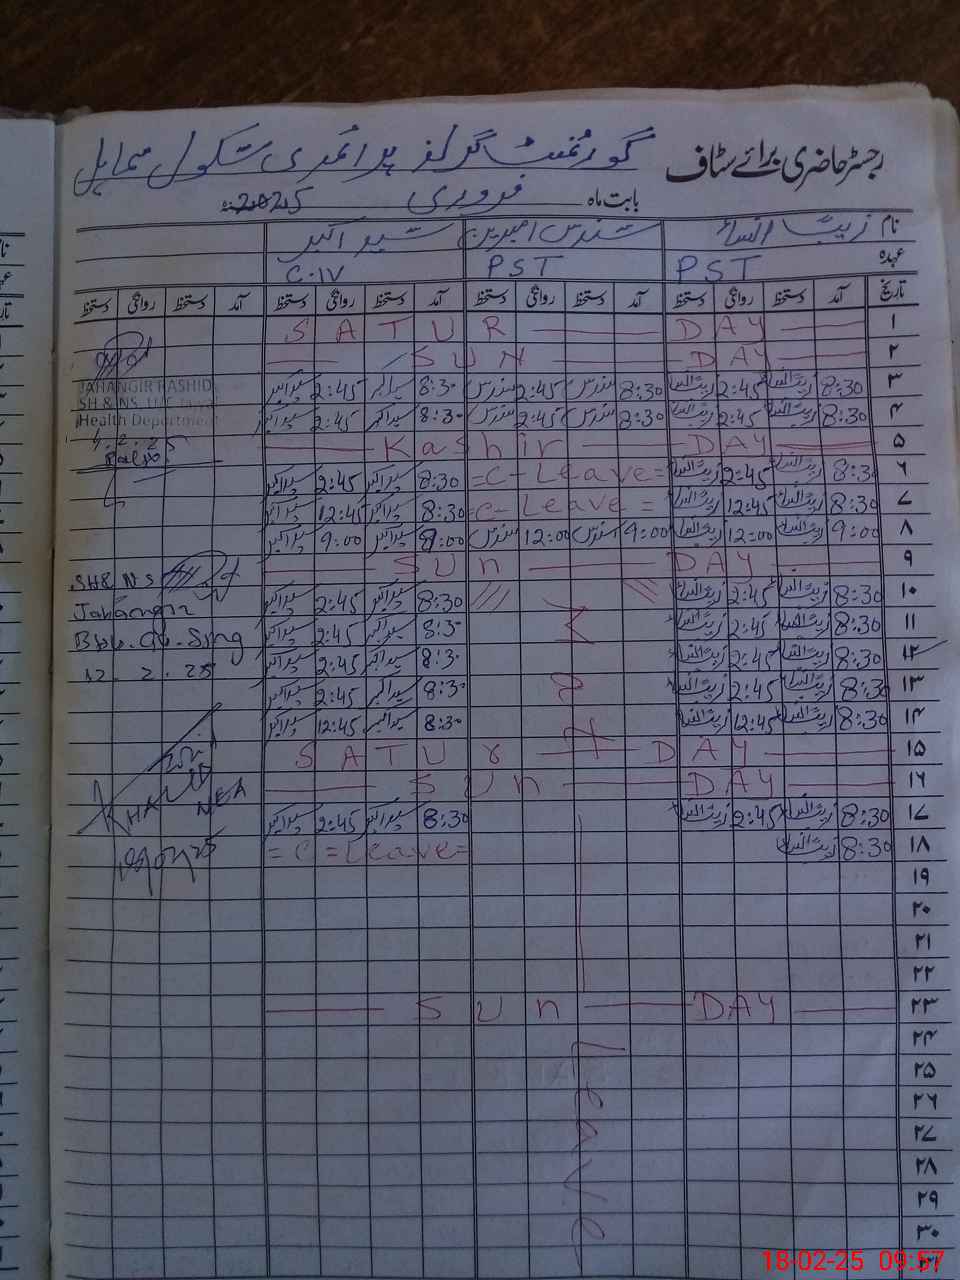 رجسٹر حاضری برائے سٹاف گورنمنٹ گرلز پرائمری سکول
بابت ماہ فروری 2025ء
نام زیب النساء سندس امبرین شیر اکبر
عہدہ PST PST C.IV
تاریخ آمد دستخط روانگی دستخط آمد دستخط روانگی دستخط آمد دستخط روانگی دستخط آمد دستخط روانگی دستخط
۱ SATUR DAY
۲ SUN DAY
۳ 8:30 زیب النساء 2:45 زیب النساء 8:30 سندس 2:45 سندس 8:30 شیر اکبر 2:45 شیر اکبر
JAHANGIR RASHID
SH & NS
۴ 8:30 زیب النساء 2:45 زیب النساء 8:30 سندس 2:45 سندس 8:30 شیر اکبر 2:45 شیر اکبر
Health Department
۵ Kashir DAY
۶ 8:30 زیب النساء 2:45 زیب النساء =C-Leave= 8:30 شیر اکبر 2:45 شیر اکبر
۷ 8:30 زیب النساء 12:45 زیب النساء =C-Leave= 8:30 شیر اکبر 12:45 شیر اکبر
۸ 9:00 زیب النساء 12:00 زیب النساء 9:00 سندس 12:00 سندس 9:00 شیر اکبر 9:00 شیر اکبر
۹ SUn DAY
SH& NS
۱۰ 8:30 زیب النساء 2:45 زیب النساء 8:30 شیر اکبر 2:45 شیر اکبر
Jahangir
۱۱ 8:30 زیب النساء 2:45 زیب النساء 8:30 شیر اکبر 2:45 شیر اکبر
۱۲ 8:30 زیب النساء 2:45 زیب النساء 8:30 شیر اکبر 2:45 شیر اکبر
12.2.25
۱۳ 8:30 زیب النساء 2:45 زیب النساء 8:30 شیر اکبر 2:45 شیر اکبر
۱۴ 8:30 زیب النساء 12:45 زیب النساء 8:30 شیر اکبر 12:45 شیر اکبر
۱۵ SATUR DAY
۱۶ SUn DAY
KHALID NEA
۱۷ 8:30 زیب النساء 2:45 زیب النساء 8:30 شیر اکبر 2:45 شیر اکبر
۱۸ 8:30 زیب النساء =C=Leave=
۱۹
۲۰
۲۱
۲۲
۲۳ SUn DAY
۲۴
۲۵
۲۶
۲۷
۲۸
۲۹
۳۰
۳۱
Leave
18-02-25 09:57